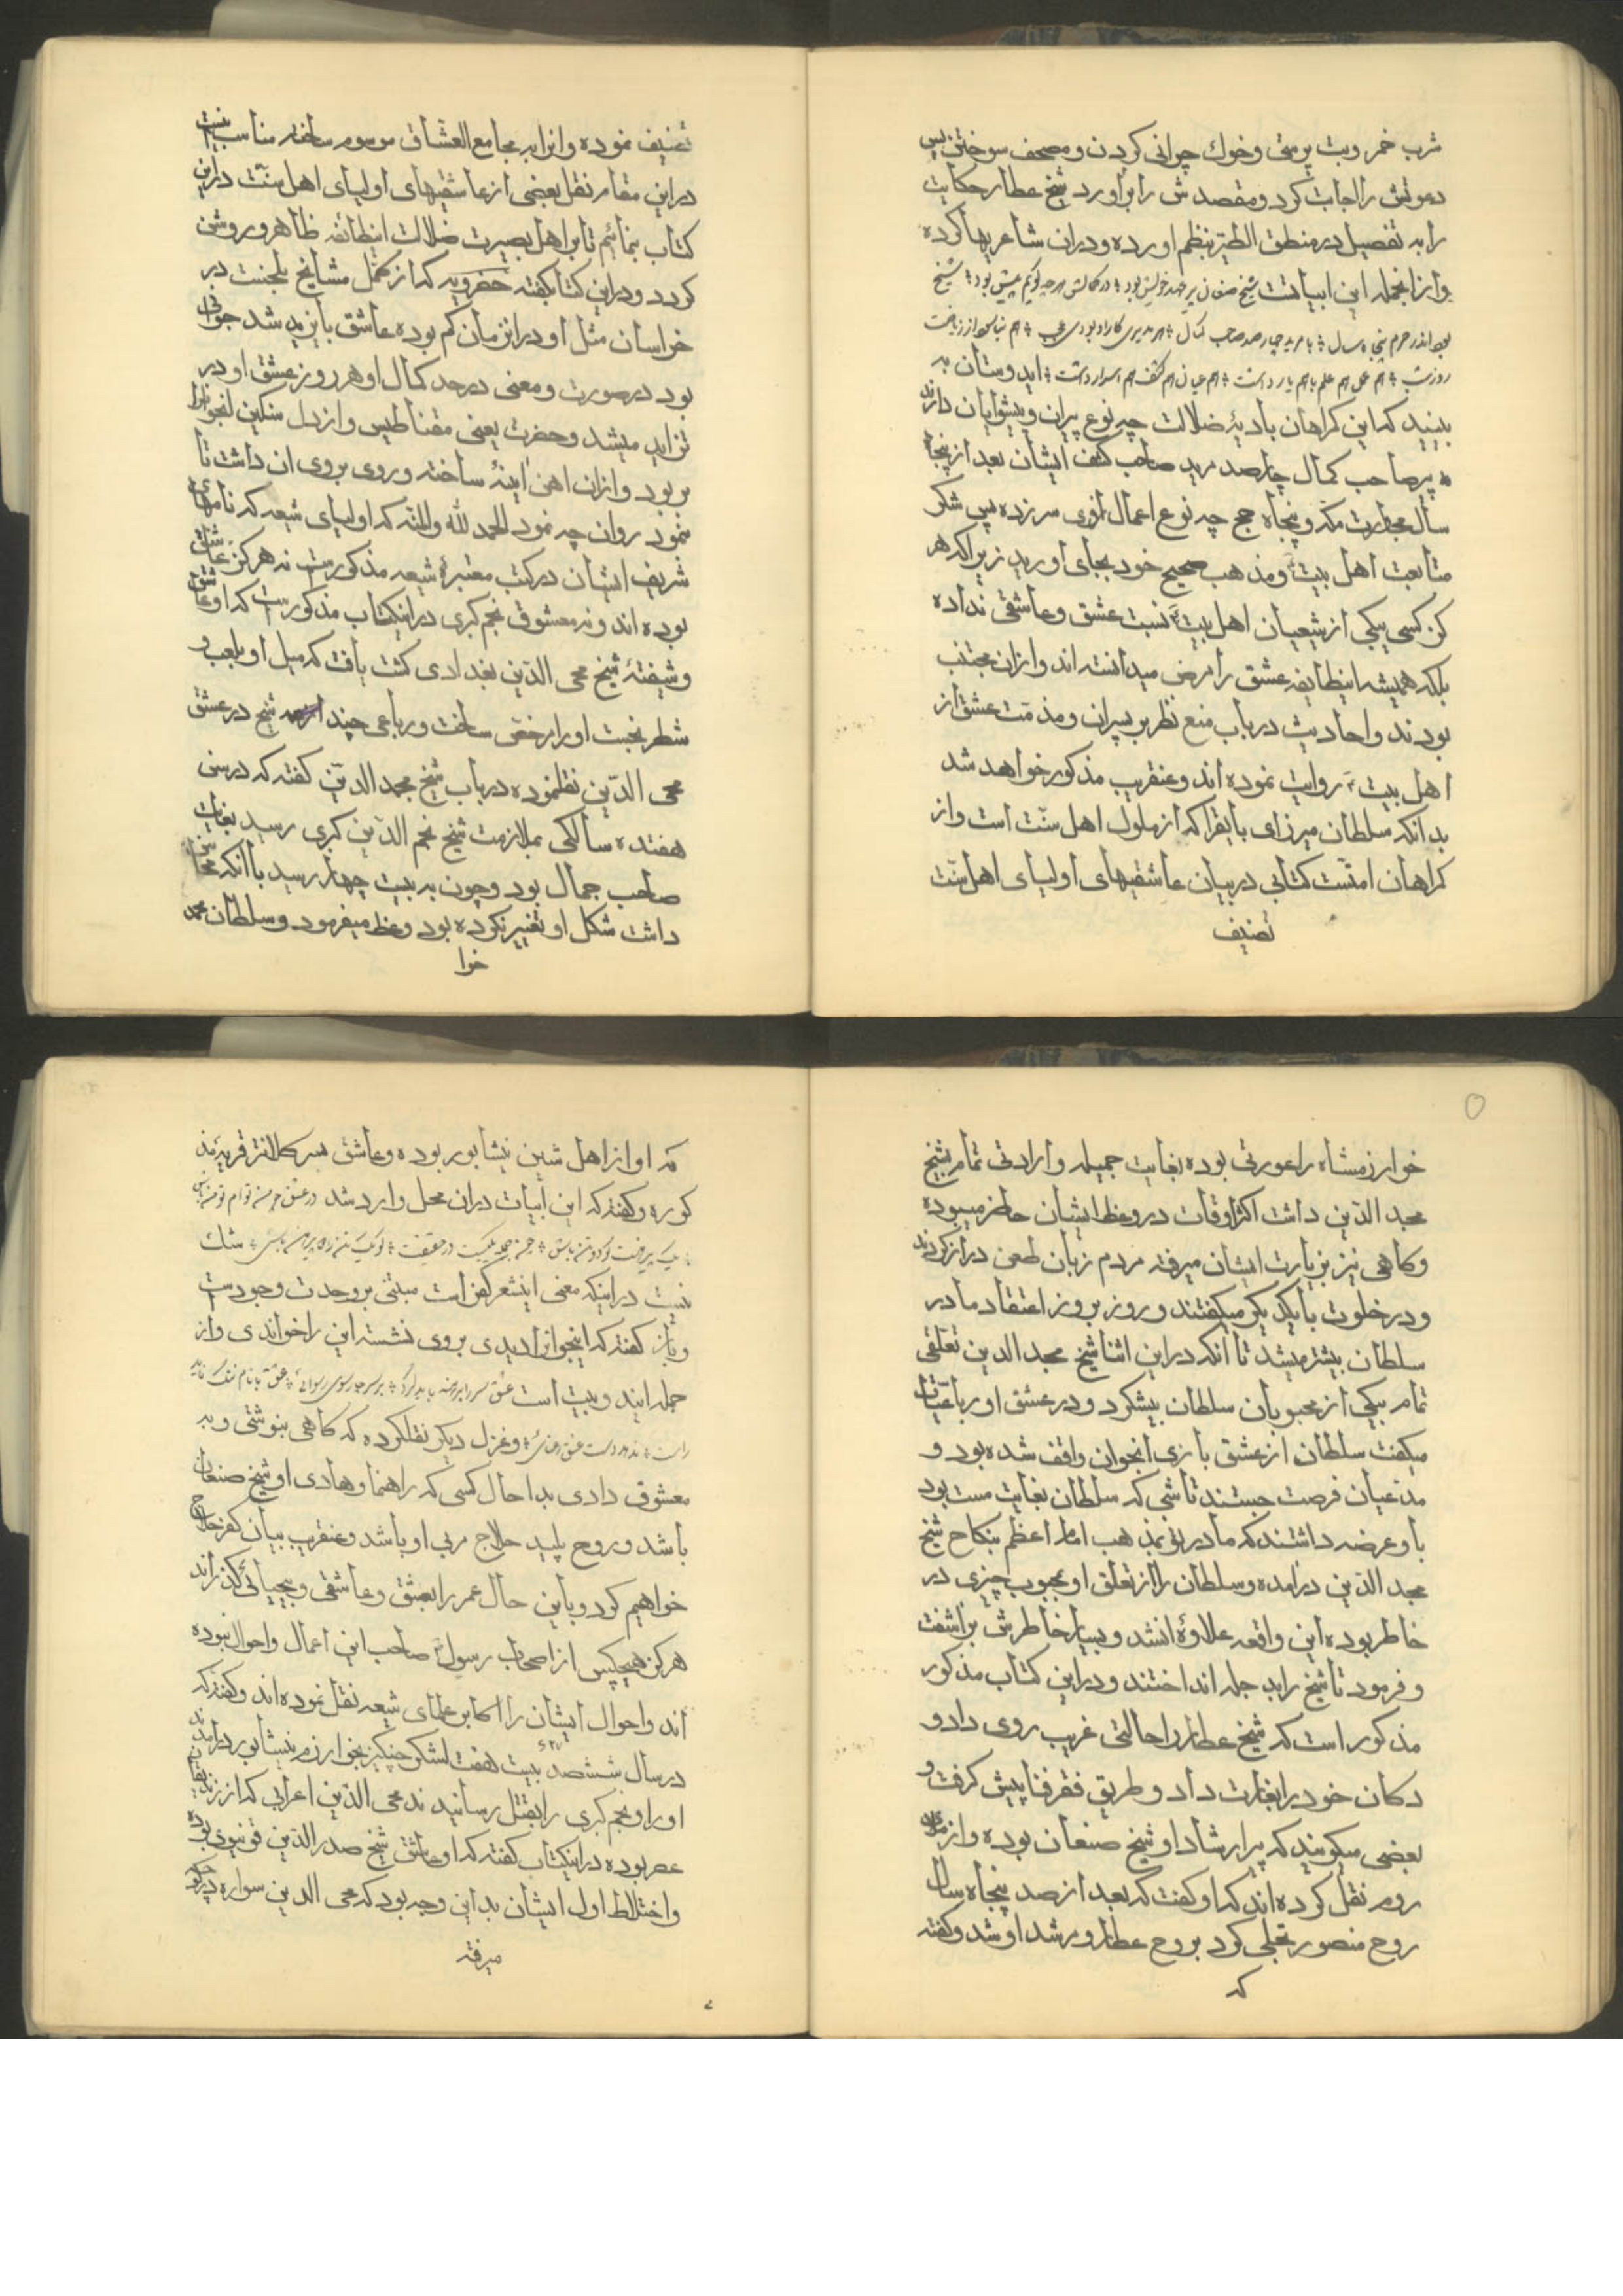 شرب خمر و بت پرستی و خوك چرانی کردن و مصحف سوختن پس
دعوتش را اجابت کرد و مقصدش را براورد شیخ عطار حکایت
را به تفصیل در منطق الطیر بنظم اورده و دران شاعریها کرده
و ازانجمله این ابیاتست شیخ صنعان پیر عهد خویش بود در کمالش هرچه گویم بیش بود شیخ
بود اندر حرم پنجاه سال با مرید چارصد صاحب کمال هر مریدی کار او بودی عجب هم نیاسود از ریاضت
روز و شب هم عمل هم علم باهم یار داشت هم عیان هم کشف هم اسرار داشت ایدوستان به
ببینید که این کمراهان بادیهٔ ضلالت چه نوع پیران و پیشوایان دارند
که پیر صاحب کمال چارصد مرید صاحب کشف ایشان بعد از پنجاه
سال مجاورت مکه و پنجاه حج چه نوع اعمال ازوی سرزده پس شکر
متابعت اهل بیت و مذهب صحیح خود بجای اورید زیرا که هر
کز کسی بیکی از شیعیان اهل بیت نسبت عشق و عاشقی نداده
بلکه همیشه اینطایفه عشق را مرض میدانسته اند و ازان مجتنب
بودند و احادیث در باب منع نظر بر پسران و مذمت عشق از
اهل بیت روایت نموده اند و عنقریب مذکور خواهد شد
بدانکه سلطان میرزای بایقرا که از ملوك اهل سنت است و از
کمراهان امتست کتابی در بیان عاشقیهای اولیای اهل سنت
تصنیف
تصنیف نموده و انرا به مجامع العشاق موسوم ساخته مناسب
دراین مقام نقل بعضی از عاشقیهای اولیای اهل سنت دراین
کتاب بنمائیم تا بر اهل بصیرت ضلالت اینطائفه ظاهر و روشن
کردد و دراین کتاب کفته خضرویه که از کمل مشایخ بلخست در
خراسان مثل او دران زمان کم بوده عاشق بایزید شد جوانی
بود در صورت و معنی در حد کمال او هر روز عشق او در
تزاید میشد و حضرت یعنی مقناطیس و از دل سنکین
بربود و ازان اهن اینهٔ ساخته و روی بروی ان داشت تا
نمود روان چه نمود الحمد لله والمنه که اولیای شیعه که نامهای
شریف ایشان در کتب معتبرهٔ شیعه مذکورست نه هرکز عاشق
بوده اند و نه معشوق نجم کبری دراینکتاب مذکورست که او عاشق
و شیفتهٔ شیخ مجی الدین بغدادی کشت یافت که میل او بلعب و
شطرنجست او را رخصت ساخت و رباعی چند شیخ در عشق
مجی الدین نقلنموده در باب شیخ مجدالدین کفته که در سن
هفتده سالکی بملازمت شیخ نجم الدین کبری رسید بغایت
صاحب جمال بود و چون به بیست چهار رسید با انکه محاسن
داشت شکل او تغییر نکرده بود وعظ میفرمود و سلطان محمد
خوا
خوارزمشاه را عورتی بوده بغایت جمیله و ارادتی تمام بشیخ
مجد الدین داشت اکثر اوقات در وعظ ایشان حاضر میبوده
و کاهی نیز بزیارت ایشان میرفته مردم زبان طعن دراز کردند
و در خلوت با یکدیکر میکفتند و روز بروز اعتقاد مادر
سلطان بیشتر میشد تا انکه دراین اثنا شیخ مجد الدین تعلقی
تمام بیکی از محبوبان سلطان پیشکرد و در عشق او رباعیات
میکفت سلطان از عشق بازی انجوان واقف شده بود و
مدعیان فرصت جستند تا شبی که سلطان بغایت مست بود
باو عرضه داشتند که مادر تو بمذهب امام اعظم بنکاح شیخ
مجد الدین درامده و سلطان را از تعلق او محبوب چیزی در
خاطر بوده این واقعه علاوهٔ انشد و بسیار خاطرش براشفت
و فرمود تا شیخ را بدجله انداختند و دراین کتاب مذکور
مذکور است که شیخ عطار را حالتی غریب روی داد و
دکان خود را بغارت داد و طریق فقر و فنا پیش کرفت و
بعضی میکویند که پیر ارشاد او شیخ صنعان بوده و از
روم نقل کرده اند که او کفت که بعد از صد پنجاه سال
روح منصور تجلی کرد بروح عطار و مرشد او شد و کفته
که
که او از اهل نیشابور بوده و عاشق پسر کلانتر قریهٔ
کوره و کفته که این ابیات دران محل وارد شد در عشق
یک پیرهنست کو دو تن باش چون جمله یکیست در حقیقت کو یک تن را دو پیرهن باش شك
نیست دراینکه معنی اینشعر کفر است مبتنی بر وحدت وجودست
و باز کفته که اینجوان را دیدی بروی نشسته این را خواندی و از
جمله ایند و بیت است عشق
راست و غزل دیکر نقلکرده که کاهی بنوشتی و به
معشوق دادی بدا حال کسی که راهنما و هادی او شیخ صنعان
باشد و روح پلید حلاج مربی او باشد و عنقریب بیان کفر حلاج
خواهیم کرد و باین حال عمر را بعشق و عاشقی و بیحیائی کذراند
هرکز هیچکس از اصحاب رسول صاحب این اعمال و احوال نبوده
اند و احوال ایشان را اکابر علمای شیعه نقل نموده اند و کفته که
در سال ششصد بیست هفت لشکر چنکیز بخوارزم و نیشابور درامدند
او را و نجم کبری را بقتل رسانیدند مجی الدین اعرابی که از
عصر بوده دراینکتاب کفته که او عاشق شیخ صدرالدین قونیوی بوده
و اختلاط اول ایشان بداین وجه بود که مجی الدین سواره
میرفته